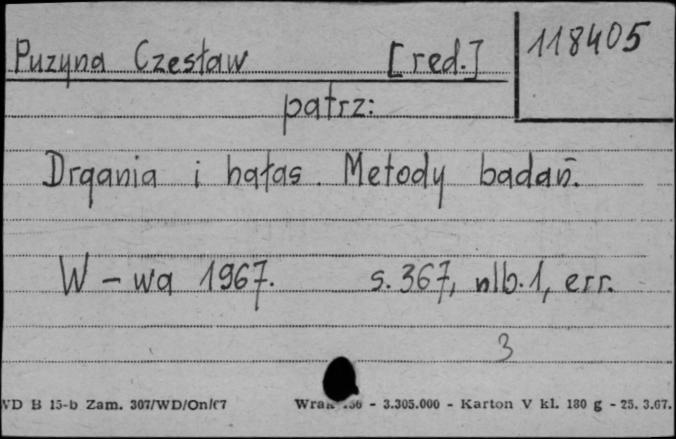 Puzyna Czesław [red.] 118405
patrz:
Drgania i hałas. Metody badań.
W-wa 1967. s. 367, nlb. 1, err.
3
WD B 15-b Zam. 307/WD/On/67 - 3.305.000 - Karton V kl. 180 g - 25. 3.67.